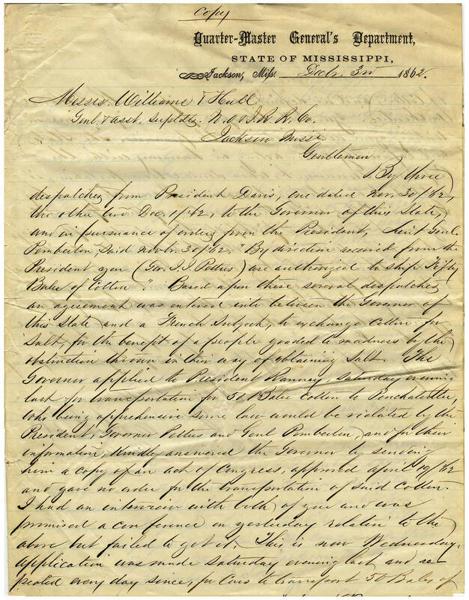 Copy
Quarter-Master General's Department,
STATE OF MISSISSIPPI,
Jackson, Miss. Decr. 3rd 1862.
Messrs. Williams & Hull
Genl & asst. Suptdts. N.O & J. R. R. Co.
Jackson Missi
Gentlemen
By three
despatches from President Davis, one dated Nov. 30/62,
the other two Dec. 1/62, to the Governor of this State,
and in pursuance of orders from the President, Lieut. Genl.
Pemberton, said Novbr. 30/62, "By direction received from the
President you (Gov. J. J. Pettus) are authorized to ship Fifty
Bales of Cotton." Based upon these several despatches
an agreement was entered into between the Governor of
this State and a French Subject, to exchange Cotton for
Salt, for the benefit of a people goaded to madness by the
obstruction thrown in their way of obtaining Salt. The
Governor applied to President Ranney Saturday evening
last for transportation for 50 Bales Cotton to Ponchatoula,
who being apprehensive some law would be violated by the
President, Governor Pettus and Genl Pemberton, and for their
information, kindly answered the Governor by sending
him a copy of an act of Congress, approved April 19/62
and gave no order for the transportation of said Cotton.
I had an interview with both of you and was
promised a conference on yesterday relative to the
above but failed to get it. This is now Wednesday,
application was made Saturday evening last and re-
peated every day since, for Cars to transport 50 Bales of